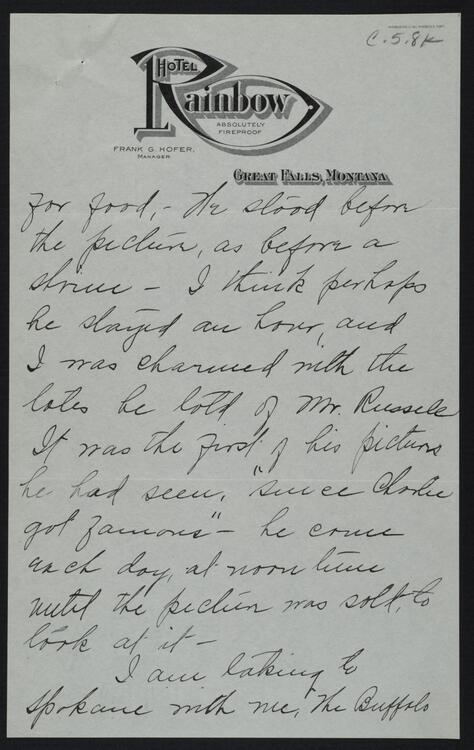 C.5.8k
HOTEL
Rainbow
ABSOLUTELY
FIREPROOF
FRANK G. HOFER,
MANAGER
GREAT FALLS, MONTANA
for food, - He stood before
the picture, as before a
shrine - I think perhaps
he stayed an hour, and
I was charmed with the
tales he told of Mr. Russell
It was the first of his pictures
he had seen, "since Charlie
got famous" - he come
each day, at noon time
until the picture was sold, to
look at it -
I am taking to
Spokane with me, The Buffalo